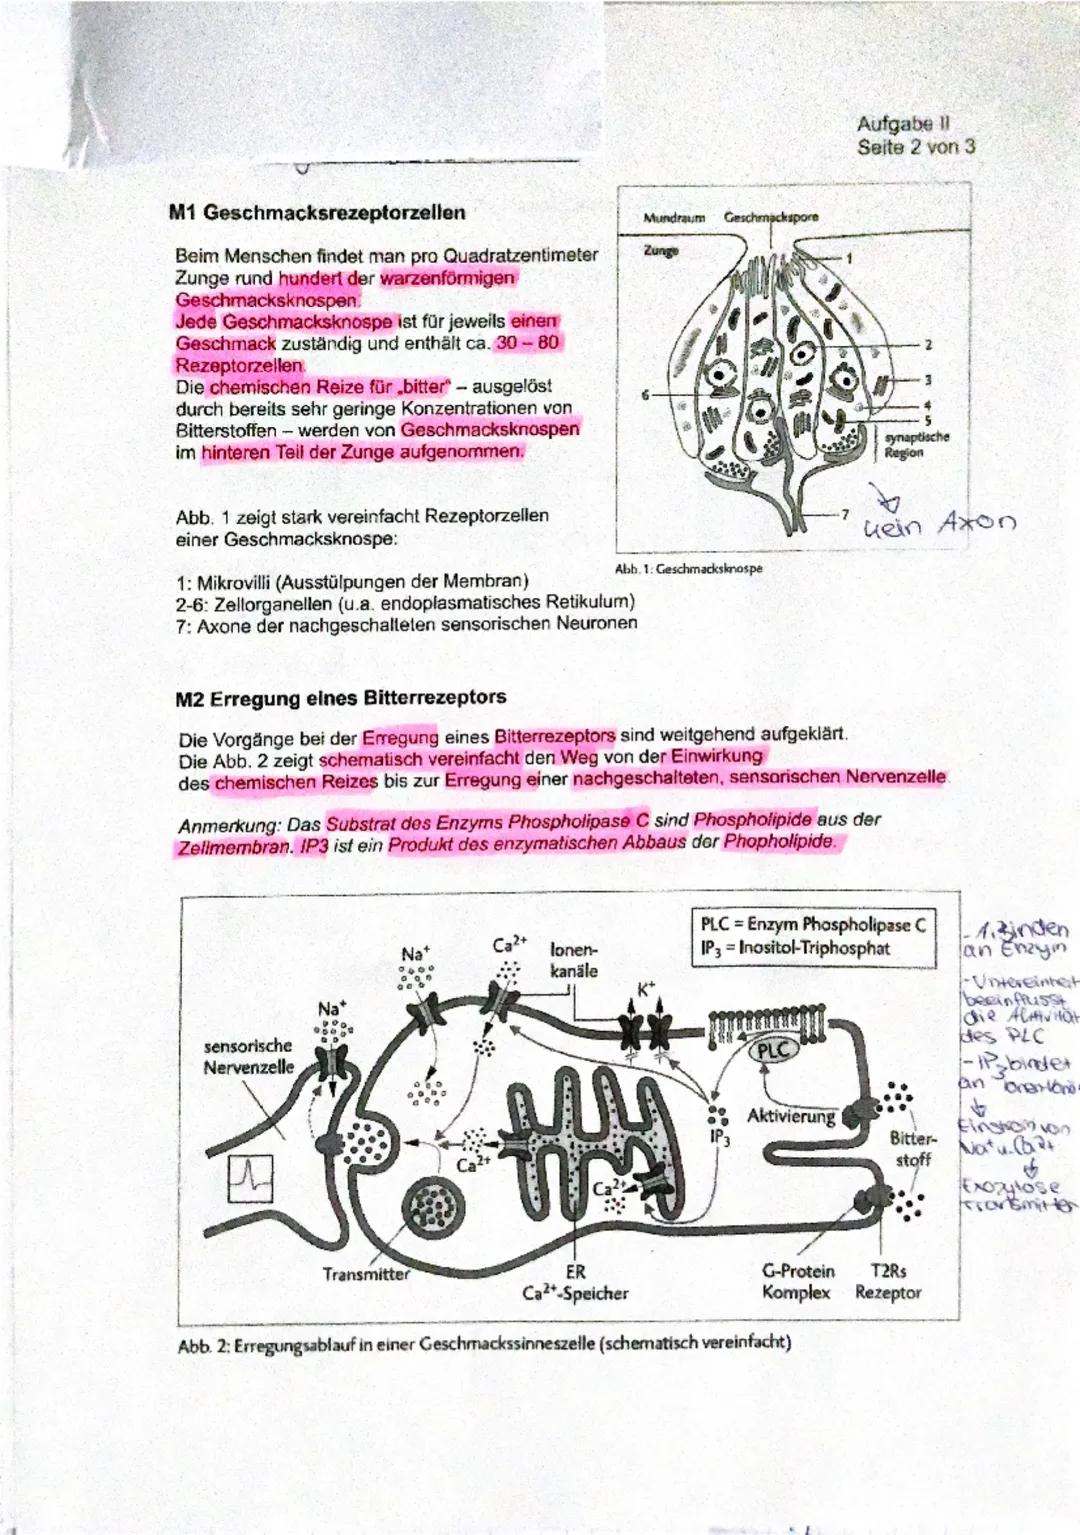 Aufgabe II
Seite 2 von 3
M1 Geschmacksrezeptorzellen
Beim Menschen findet man pro Quadratzentimeter
Zunge rund hundert der warzenförmigen
Geschmacksknospen.
Jede Geschmacksknospe ist für jeweils einen
Geschmack zuständig und enthält ca. 30 – 80
Rezeptorzellen.
Die chemischen Reize für „bitter“ – ausgelöst
durch bereits sehr geringe Konzentrationen von
Bitterstoffen – werden von Geschmacksknospen
im hinteren Teil der Zunge aufgenommen.
Abb. 1 zeigt stark vereinfacht Rezeptorzellen
einer Geschmacksknospe:
1: Mikrovilli (Ausstülpungen der Membran)
2-6: Zellorganellen (u.a. endoplasmatisches Retikulum)
7: Axone der nachgeschalteten sensorischen Neuronen
Mundraum Geschmackspore
Zunge
1
2
3
4
5
6
synaptische
Region
7
kein Axon
Abb. 1: Geschmacksknospe
M2 Erregung eines Bitterrezeptors
Die Vorgänge bei der Erregung eines Bitterrezeptors sind weitgehend aufgeklärt.
Die Abb. 2 zeigt schematisch vereinfacht den Weg von der Einwirkung
des chemischen Reizes bis zur Erregung einer nachgeschalteten, sensorischen Nervenzelle.
Anmerkung: Das Substrat des Enzyms Phospholipase C sind Phospholipide aus der
Zellmembran. IP3 ist ein Produkt des enzymatischen Abbaus der Phopholipide.
PLC = Enzym Phospholipase C
IP₃ = Inositol-Triphosphat
Na⁺
Ca²⁺
Ionen-
kanäle
K⁺
Na⁺
sensorische
Nervenzelle
PLC
Aktivierung
IP₃
Bitter-
stoff
Ca²⁺
Ca²⁺
Transmitter
ER
Ca²⁺-Speicher
G-Protein
Komplex
T2Rs
Rezeptor
- 1. Binden
an Enzym
- Untereinheit
beeinflusst
die Aktivität
des PLC
- IP₃ bindet
an
Einstrom von
Na⁺ u. Ca²⁺
Exozytose
Transmitter
Abb. 2: Erregungsablauf in einer Geschmackssinneszelle (schematisch vereinfacht)